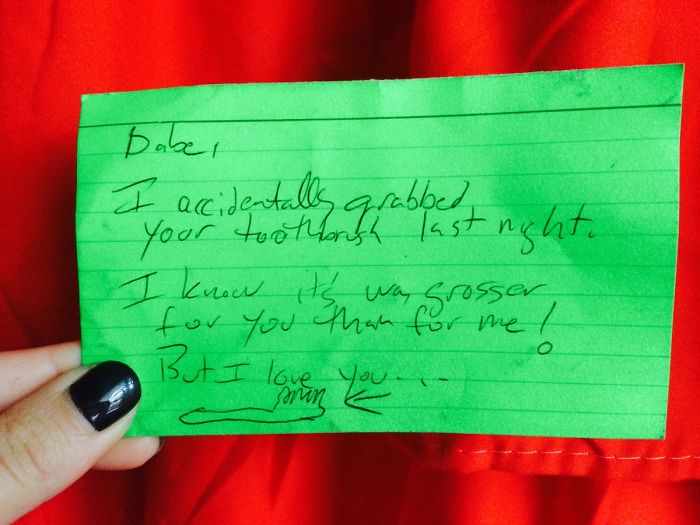 Babe,
I accidentally grabbed
your toothbrush last night.
I know it's way grosser
for you than for me!
But I love you...